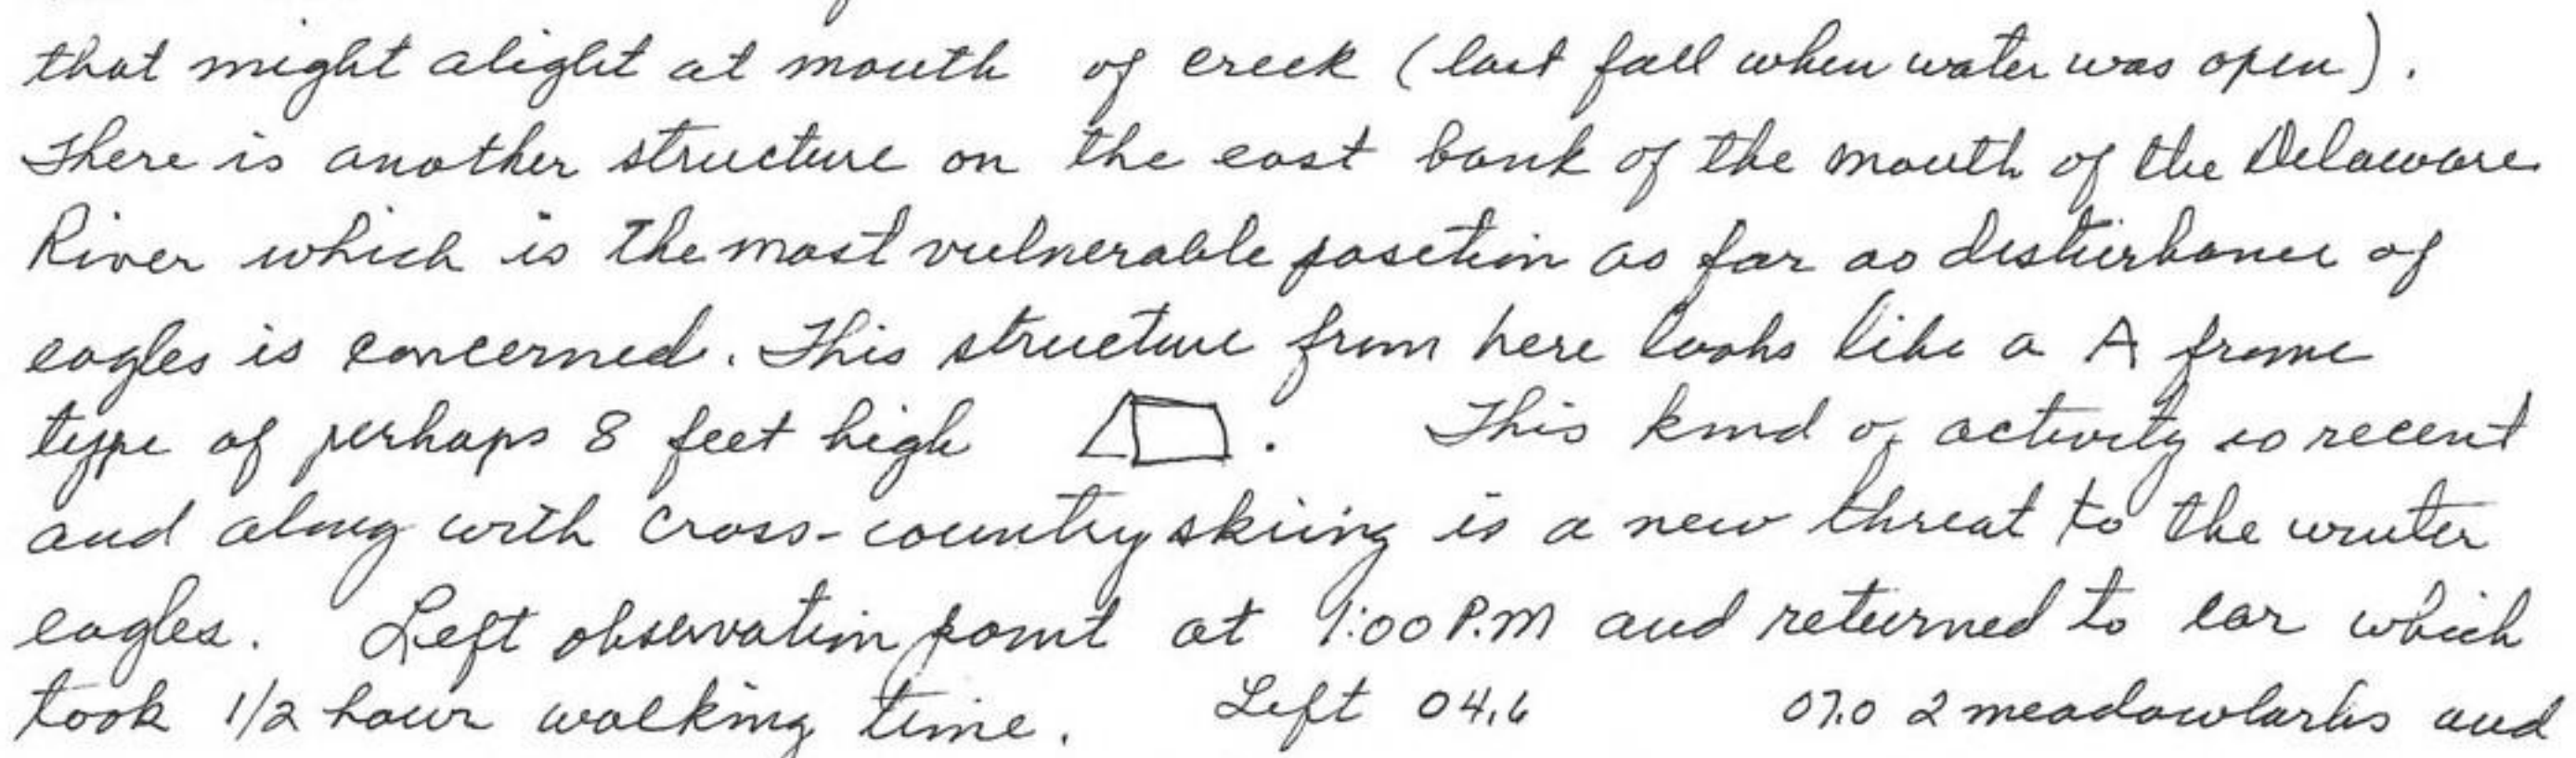 that might alight at mouth of creek (last fall when water was open).
There is another structure on the east bank of the mouth of the Delaware
River which is the most vulnerable position as far as disturbance of
eagles is concerned. This structure from here looks like a A frame
type of perhaps 8 feet high . This kind of activity is recent
and along with cross-country skiing is a new threat to the winter
eagles. Left observation point at 1:00 P.M and returned to car which
took 1/2 hour walking time. Left 04.6 07.0 2 meadowlarks and